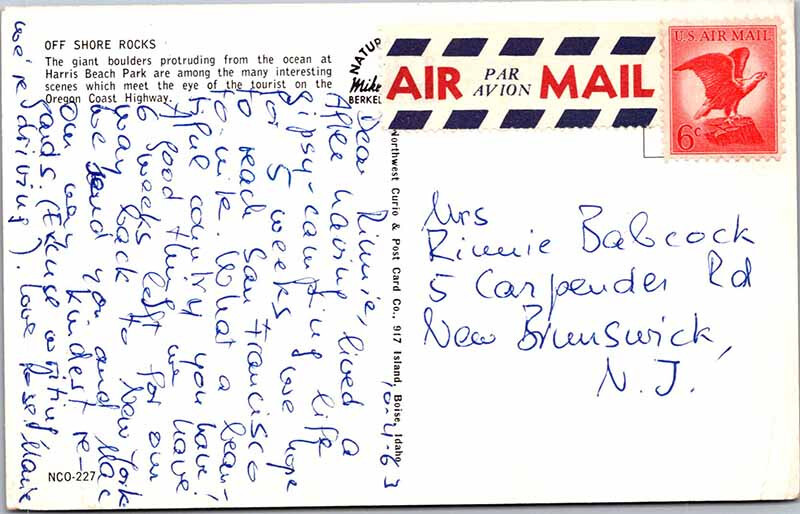 OFF SHORE ROCKS
The giant boulders protruding from the ocean at
Harris Beach Park are among the many interesting
scenes which meet the eye of the tourist on the
Oregon Coast Highway.
NATUR
Mike
BERKEL
AIR PAR AVION MAIL
U.S. AIR MAIL
6c
10-4-63
Dear Rinnie,
After having lived a
gipsy-camping life
for 5 weeks we hope
to reach San Francisco
to-nite. What a beau-
tiful country you have.
A good thing we have
6 weeks left for our
way back to New York.
We send you and Mac
our very kindest re-
gards. (Excuse writing
we're driving). Love Rosemarie
Mrs
Rinnie Babcock
5 Carpender Rd
New Brunswick,
N. J.
Northwest Curio & Post Card Co., 917 Island, Boise, Idaho
NCO-227